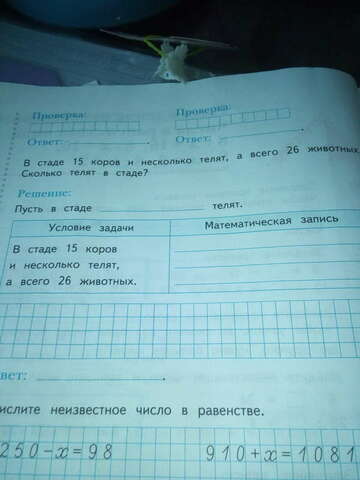 Проверка:
Проверка:
Ответ:
Ответ:
В стаде 15 коров и несколько телят, а всего 26 животных.
Сколько телят в стаде?
Решение:
Пусть в стаде телят.
Условие задачи
Математическая запись
В стаде 15 коров
и несколько телят,
а всего 26 животных.
вет:
ислите неизвестное число в равенстве.
250 – x = 98
910 + x = 1081